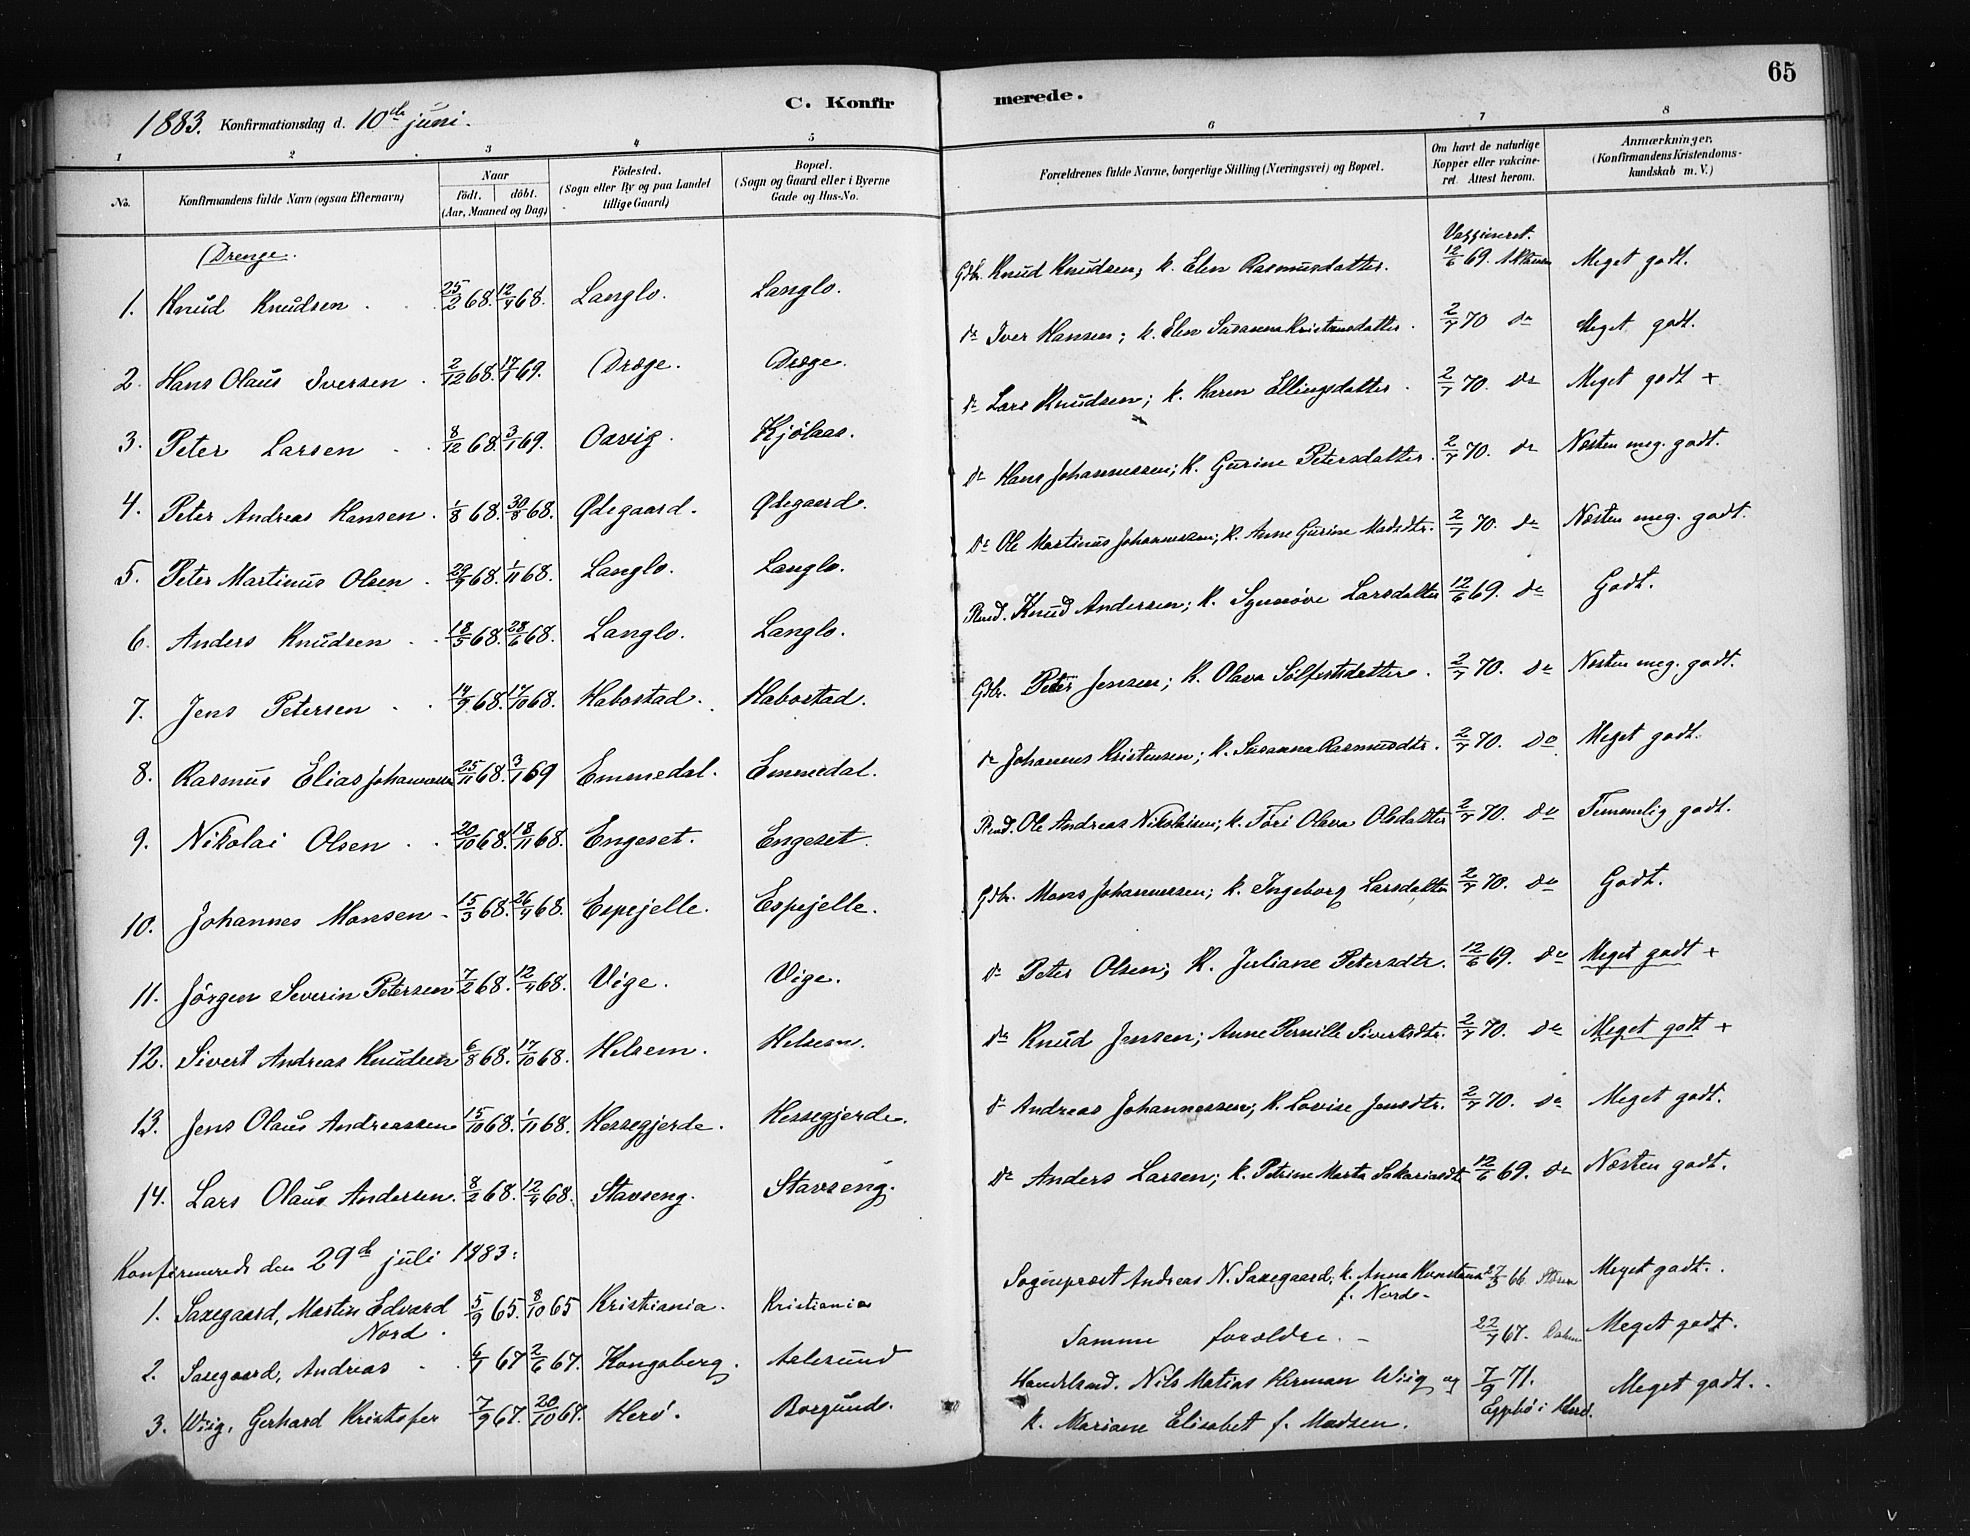 65
C. Konfirmerede.
1883. Konfirmationsdag d. 10de juni.
1 2 3 4 5 6 7 8
No. Konfirmandens fulde Navn (ogsaa Efternavn) Naar födt. döbt. (Aar, Maaned og Dag) Födested. (Sogn eller By og paa Landet tillige Gaard) Bopæl. (Sogn og Gaard eller i Byerne Gade og Hus-No. Forældrenes fulde Navne, borgerlige Stilling (Næringsvei) og Bopæl. Om havt de naturlige Kopper eller vakcineret. Attest herom. Anmærkninger. (Konfirmandens Kristendomskundskab m. V.)
Drenge.
1. Knud Knudsen 25/2 68. 12/4 68. Langlo. Langlo. Gdbr. Knud Knudsen; k. Elen Rasmusdatter. Vaxsineret. 12/6 69. Meget godt.
2. Hans Olaus Iversen 2/12 68. 17/1 69. Dræge. Dræge. do Iver Hansen; k. Elen Susanna Kristensdatter. 2/7 70 do Meget godt.
3. Peter Larsen 8/12 68. 3/1 69. Aarvig. Kjølaas. do Lars Knudsen; k. Karen Ellingsdatter. 2/7 70. do Meget godt +
4. Peter Andreas Hansen. 1/8 68. 30/8 68. Ødegaard. Ødegaard. do Hans Johannessen; k. Gurine Petersdatter. 2/7 70. do Næsten meg. godt.
5. Peter Martinus Olsen. 29/9 68. 1/11 68. Langlo. Langlo. do Ole Martinus Johannessen; k. Anne Gurine Madsdtr. 2/7 70. do Næsten meg. godt.
6. Anders Knudsen 18/5 68. 28/6 68. Langlo. Langlo. Knud Andersen; k. Synnøve Larsdatter 12/6 69. do Godt.
7. Jens Petersen 14/9 68. 17/10 68. Habostad. Habostad. Gdbr. Peter Jensen; k. Olava Sølfestsdatter. 2/7 70. do Næsten meg. godt.
8. Rasmus Elias Johannessen 25/11 68. 3/1 69 Emmedal. Emmedal. do Johannes Kristensen; k. Susanna Rasmusdtr. 2/7 70. do Meget godt.
9. Nikolai Olsen 20/10 68. 18/11 68. Engeset. Engeset. Ole Andreas Nikolaisen; k. Tøri Olava Olsdatter 2/7 70. do Temmelig godt.
10. Johannes Monsen 15/3 68. 26/4 68. Espejelle. Espejelle. Gdbr. Mons Johannessen; k. Ingeborg Larsdatter 2/7 70. do Godt.
11. Jörgen Severin Petersen 7/2 68. 12/4 68. Vige. Vige. do Peter Olsen; k. Juliane Petersdtr. 12/6 69. do Meget godt +
12. Sivert Andreas Knudsen 6/8 68. 17/10 68. Helsem. Helsem. do Knud Jensen; Anne Pernille Sivertsdtr. 2/7 70. do Meget godt +
13. Jens Olaus Andreassen 15/10 68. 1/11 68. Hessegjerde. Hessegjerde. do Andreas Johannessen; k. Lovise Jensdtr. 2/7 70. do Meget godt.
14. Lars Olaus Andersen. 8/2 68. 12/4 68. Stavseng. Stavseng. do Anders Larsen; k. Petrine Marta Sakariasdt. 12/6 69. do Næsten godt.
Konfirmerede den 29de juli 1883:
1. Saxegaard, Martin Edvard Nord. 5/9 65. 8/10 65 Kristiania. Kristiania Sogneprest Andreas N. Saxegaard; k. Anna Konstanse f. Nord. 27/3 66 Meget godt.
2. Saxegaard, Andreas 6/1 67 2/6 67. Kongsberg. Aalesund Samme foreldre. 22/7 67. Meget godt.
3. Wiig, Gerhard Kristofer 7/9 67. 20/10 67. Herö. Borgund. Handelsmd. Nils Matias Herman Wiig og k. Mariane Elisabet f. Madsen. 7/9 71. Meget godt.